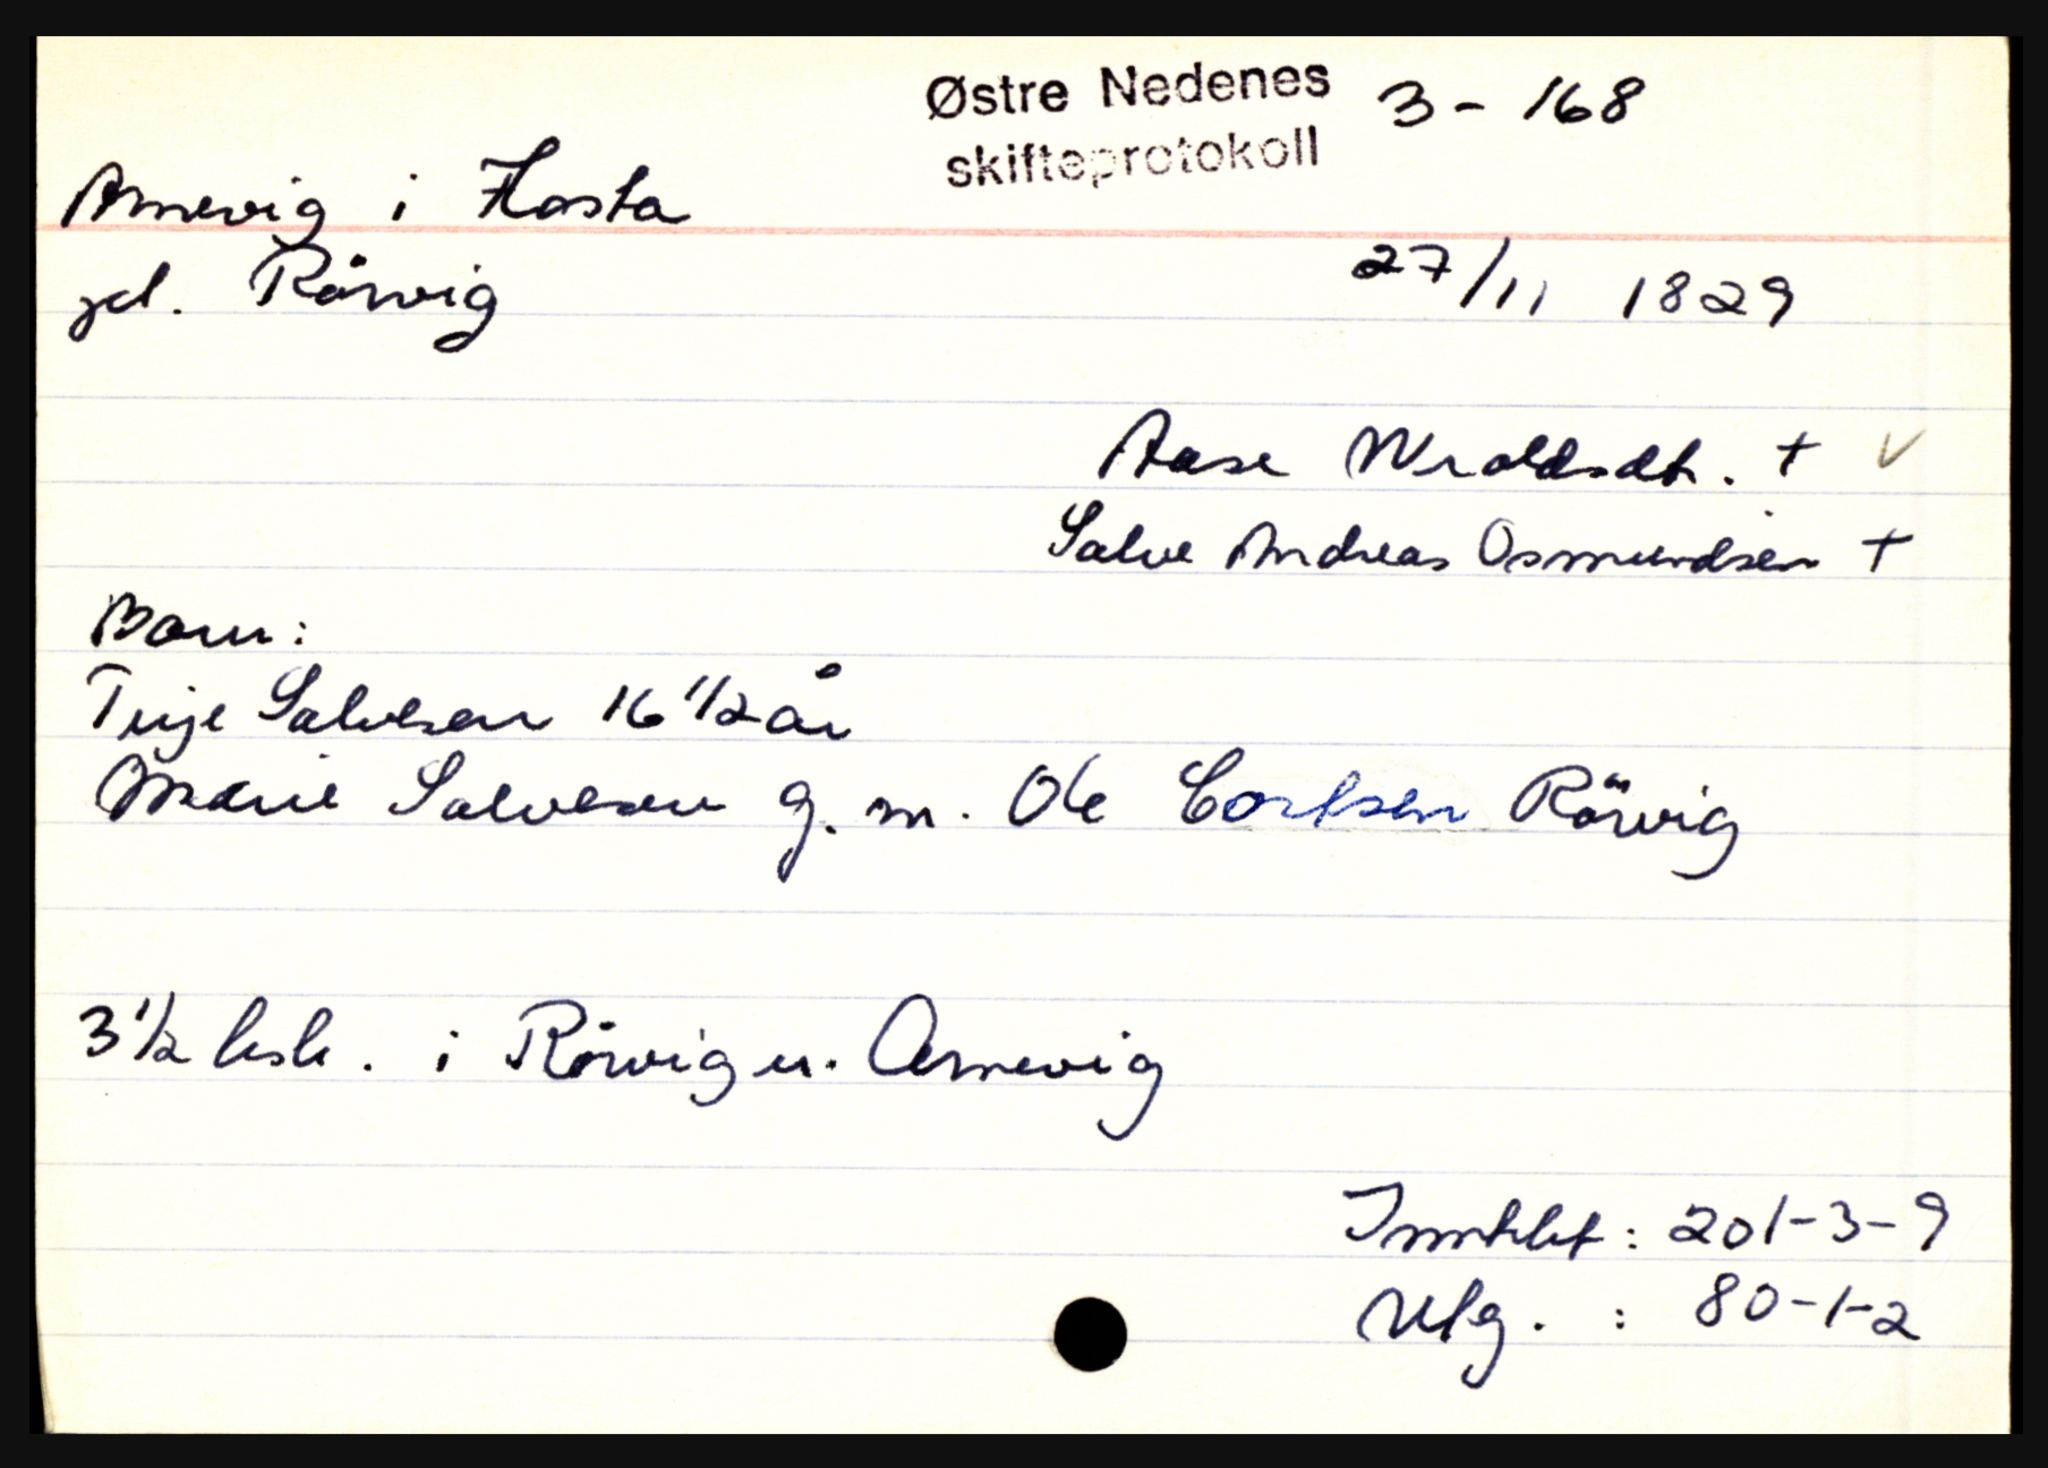 Østre Nedenes 3 - 168
skifteprotokoll
Arnevig i Flosta
gd. Rörvig
27/11 1829
Aase Wroldsdt. + V
Salve Andreas Osmundsen +
Barn:
Terje Salvesen 16 1/2 år
Marie Salvesen g. m. Ole Carlsen Rörvig
3 1/2 hsk. i Rörvig u. Arnevig
Inntekt : 201-3-9
Utg. : 80-1-2